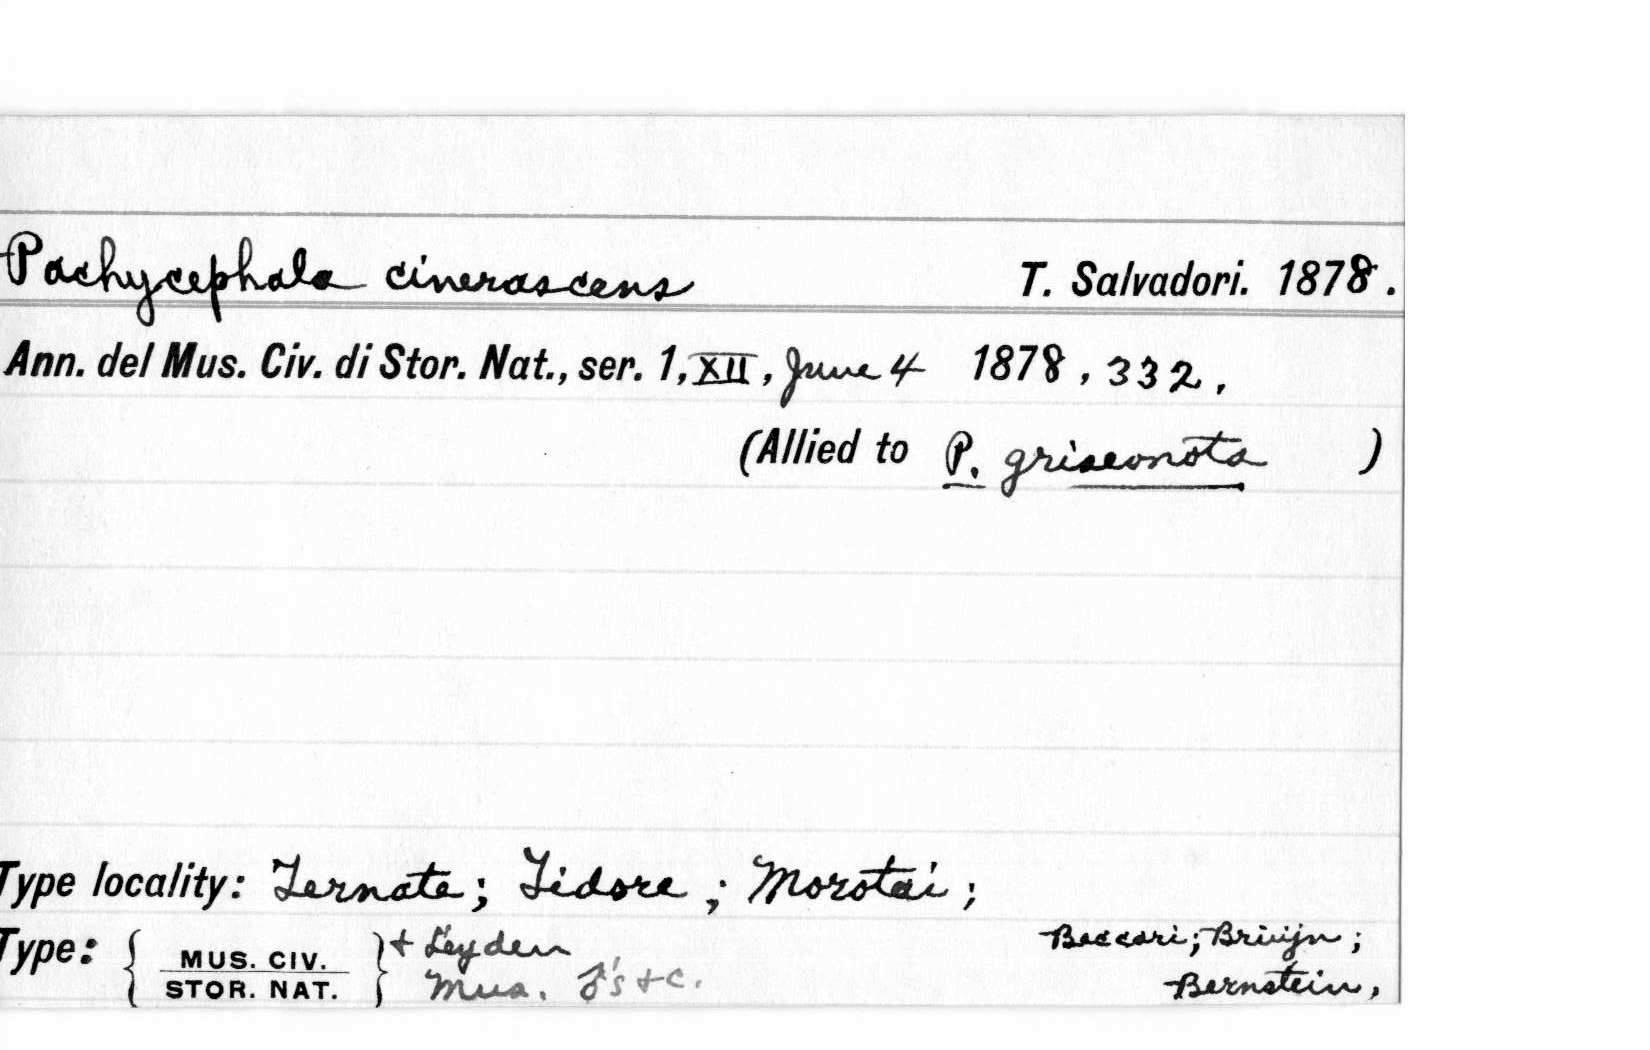 Pachycephala cinerascens T. Salvadori. 1878.
Ann. del Mus. Civ. di Stor. Nat., ser. 1, XII, June 4 1878, 332,
(Allied to P. griseonota )
Type locality: Ternate; Tidore; Morotai;
Type: { MUS. CIV. STOR. NAT. } + Leyden Mus. ♂'s + c.
Beccari; Bruijn;
Bernstein,